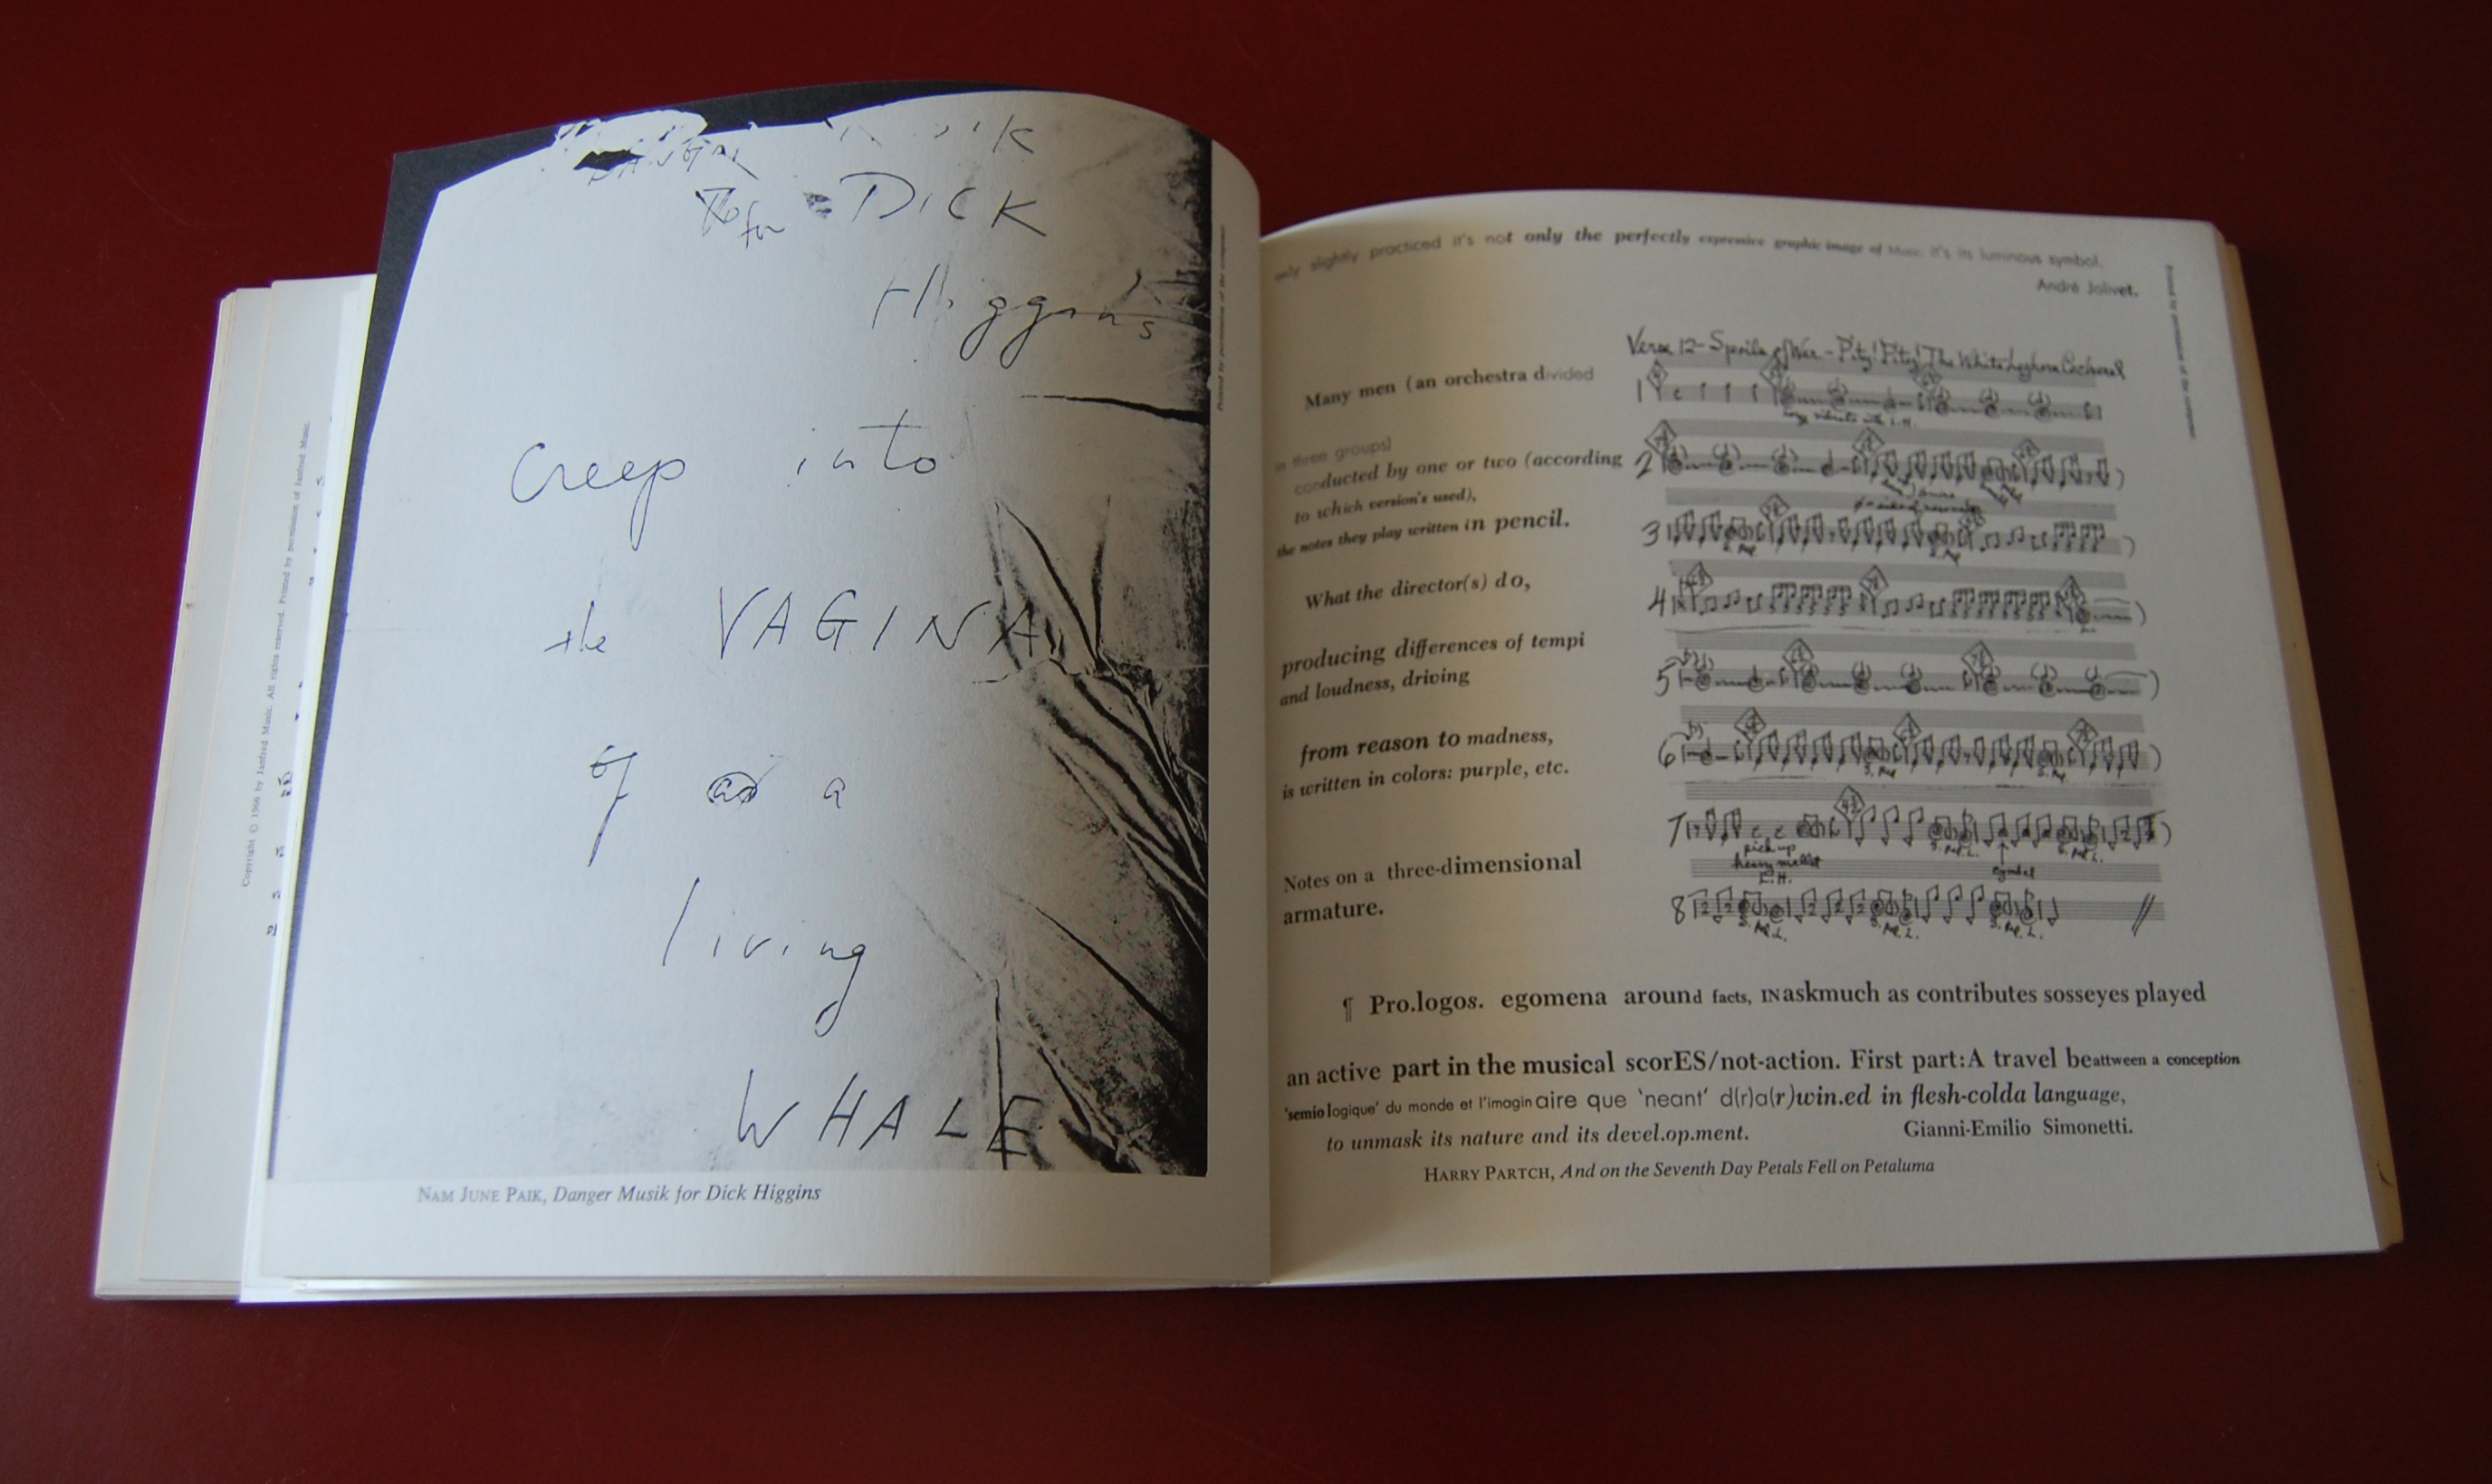 DANGER MUSIK
for DICK
Higgins
Creep into
the VAGINA
of a
living
WHALE
NAM JUNE PAIK, Danger Musik for Dick Higgins
Printed by permission of the composer.
Copyright © 1966 by Janfred Music. All rights reserved. Printed by permission of Janfred Music.
only slightly practiced it's not only the perfectly expressive graphic image of Music it's its luminous symbol.
André Jolivet.
Printed by permission of the composer.
Many men (an orchestra divided
in three groups)
conducted by one or two (according
to which version's used),
the notes they play written in pencil.
What the director(s) do,
producing differences of tempi
and loudness, driving
from reason to madness,
is written in colors: purple, etc.
Notes on a three-dimensional
armature.
Verse 12- Spoils of War - Pity! Pity! The White Leghorn Cockerel
1
long vibrato with L.H.
2
3
4
5
6
7
pick up
heavy mallet
L.H.
cymbal
8
¶ Pro.logos. egomena around facts, INaskmuch as contributes sosseyes played
an active part in the musical scorES/not-action. First part:A travel beattween a conception
'semiologique' du monde et l'imaginaire que 'neant' d(r)a(r)win.ed in flesh-colda language,
to unmask its nature and its devel.op.ment. Gianni-Emilio Simonetti.
HARRY PARTCH, And on the Seventh Day Petals Fell on Petaluma